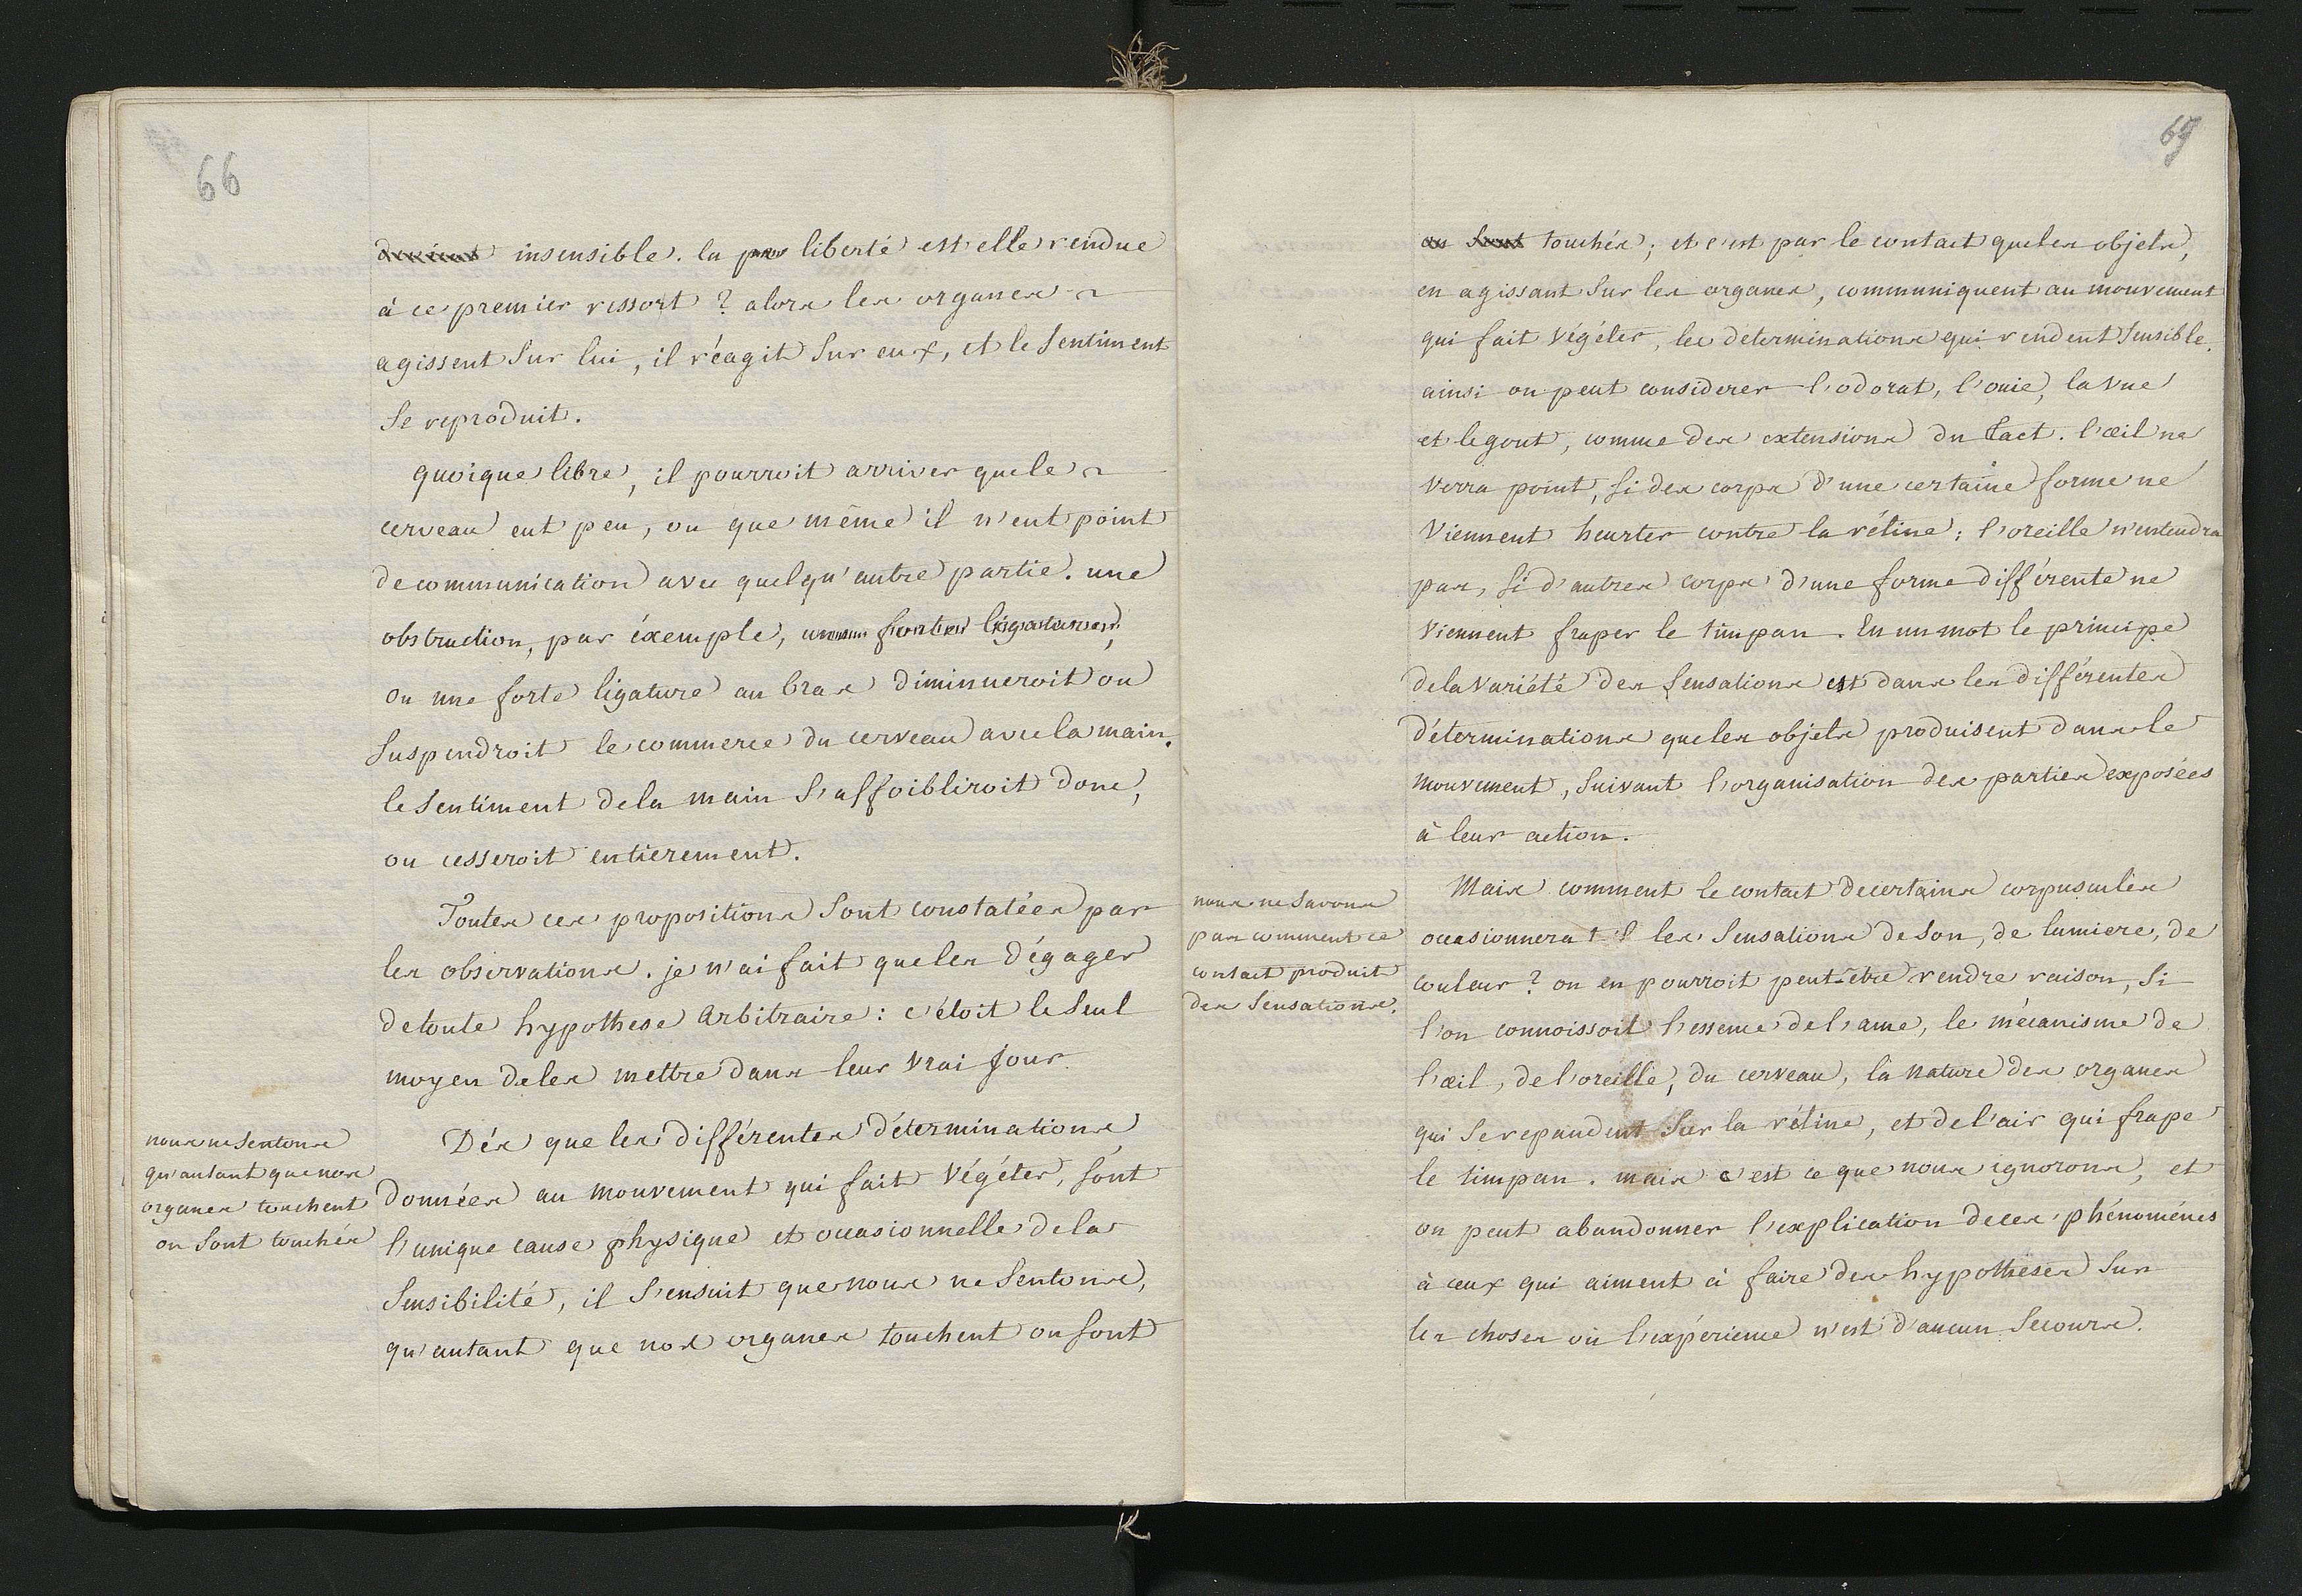 66
insensible. la liberté est elle rendue
à ce premier ressort ? alors les organes
agissent sur lui, il réagit sur eux, et le sentiment
se reproduit.
quoique libre, il pourroit arriver que le
cerveau eut peu, ou que même il n'eut point
de communication avec quelqu'autre partie. une
obstruction, par éxemple,
ou une forte ligature au bras diminueroit ou
suspendroit le commerce du cerveau avec la main.
le sentiment de la main s'affoibliroit donc,
ou cesseroit entierement.
Toutes ces propositions sont constatées par
les observations. je n'ai fait que les dégager
de toute hypothese arbitraire : c'étoit le seul
moyen de les mettre dans leur vrai jour.
nous ne sentons
qu'autant que nos
organes touchent
ou sont touchés
Dés que les différentes déterminations
données au mouvement qui fait végéter, sont
l'unique cause physique et occasionnelle de la
sensibilité, il s'ensuit que nous ne sentons,
qu'autant que nos organes touchent ou sont
69
ou sont touchés ; et c'est par le contact que les objets,
en agissant sur les organes, communiquent au mouvement
qui fait végéter, les determinations qui rendent sensible.
ainsi on peut considerer l'odorat, l'ouie, la vue
et le gout, comme des extensions du tact. l'œil ne
verra point, si des corps d'une certaine forme ne
viennent heurter contre la rétine ; l'oreille n'entendra
pas, si d'autres corps d'une forme différente ne
viennent fraper le timpan. En un mot le principe
de la variété des sensations est dans les différentes
déterminations que les objets produisent dans le
mouvement, suivant l'organisation des parties exposées
à leur action.
nous ne savons
pas comment ce
contact produit
des sensations.
Mais comment le contact de certains corpuscules
occasionnera t'il les sensations de son, de lumiere, de
couleur ? on en pourroit peut-etre rendre raison, si
l'on connoissoit l'essence de l'ame, le mécanisme de
l'œil, de l'oreille, du cerveau, la nature des organes
qui se repandent sur la rétine, et de l'air qui frape
le timpan. mais c'est ce que nous ignorons, et
on peut abandonner l'explication de ces phénoménes
à ceux qui aiment à faire des hypothèses sur
les choses où l'expérience n'est d'aucun secours.
K